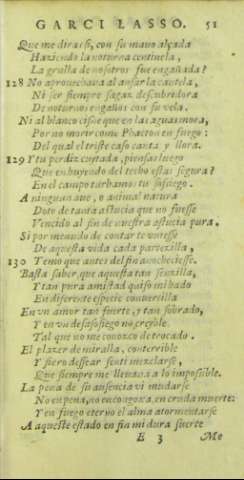 GARCI LASSO. 51
Que me diras si, con su mano alçada
Haziendo la notorna centinela,
La grulla de nosotros fue engañada?
128 No aprouechaua al ansar la cautela,
Ni ser siempre sagaz descubridora
De noturnos engaños con su vela.
Ni al blanco cisne que en las aguas mora,
Por no morir como Phaeton en fuego:
Del qual el triste caso canta y llora.
129 Y tu perdiz cuytada, piensas luego
Que en huyendo del techo estas segura?
En el campo turbamos tu sosiego.
A ningun aue, o animal natura
Doto de tanta astucia que no fuesse
Vencido al fin de nuestra astucia pura.
Si por menudo de contar te vuiesse
De aquesta vida cada partezilla,
130 Temo que antes del fin anocheciesse.
Basta saber, que aquesta tan senzilla,
Y tan pura amistad quiso mi hado
En diferente especie conuertilla
En vn amor tan fuerte, y tan sobrado,
Y en vn desasosiego no creyble
Tal que no me conozco de trocado.
El plazer de miralla, con terrible
Y fiero dessear senti mezclarse,
Que siempre me lleuaua a lo impossible.
La pena de su ausencia vi mudarse
No en pena, no en congoxa, en cruda muerte:
Y en fuego eterno el alma atormentarse
A aqueste estado en fin mi dura suerte
E 3 Me